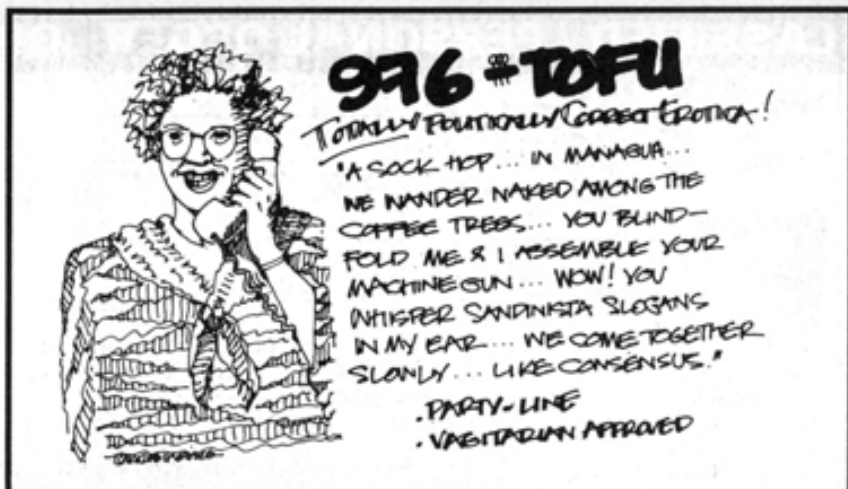 976-TOFU
TOTALLY POLITICALLY CORRECT EROTICA!
"A SOCK HOP... IN MANAGUA...
WE WANDER NAKED AMONG THE
COFFEE TREES... YOU BLIND-
FOLD ME & I ASSEMBLE YOUR
MACHINE GUN... WOW! YOU
WHISPER SANDINISTA SLOGANS
IN MY EAR... WE COME TOGETHER
SLOWLY... LIKE CONSENSUS."
• PARTY-LINE
• VAGITARIAN APPROVED